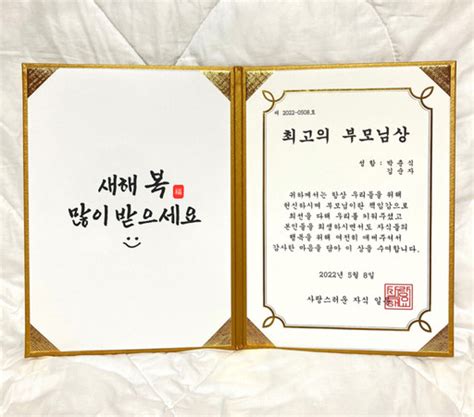 새해 복
많이 받으세요
제 2022-0508호
최고의 부모님상
성함 : 박춘식
김순자
귀하께서는 항상 우리들을 위해
헌신하시며 부모님이란 책임감으로
최선을 다해 우리를 키워주셨고
본인들을 희생하시면서도 자식들의
행복을 위해 여전히 애써주셔서
감사한 마음을 담아 이 상을 수여합니다.
2022년 5월 8일
사랑스러운 자식 일동